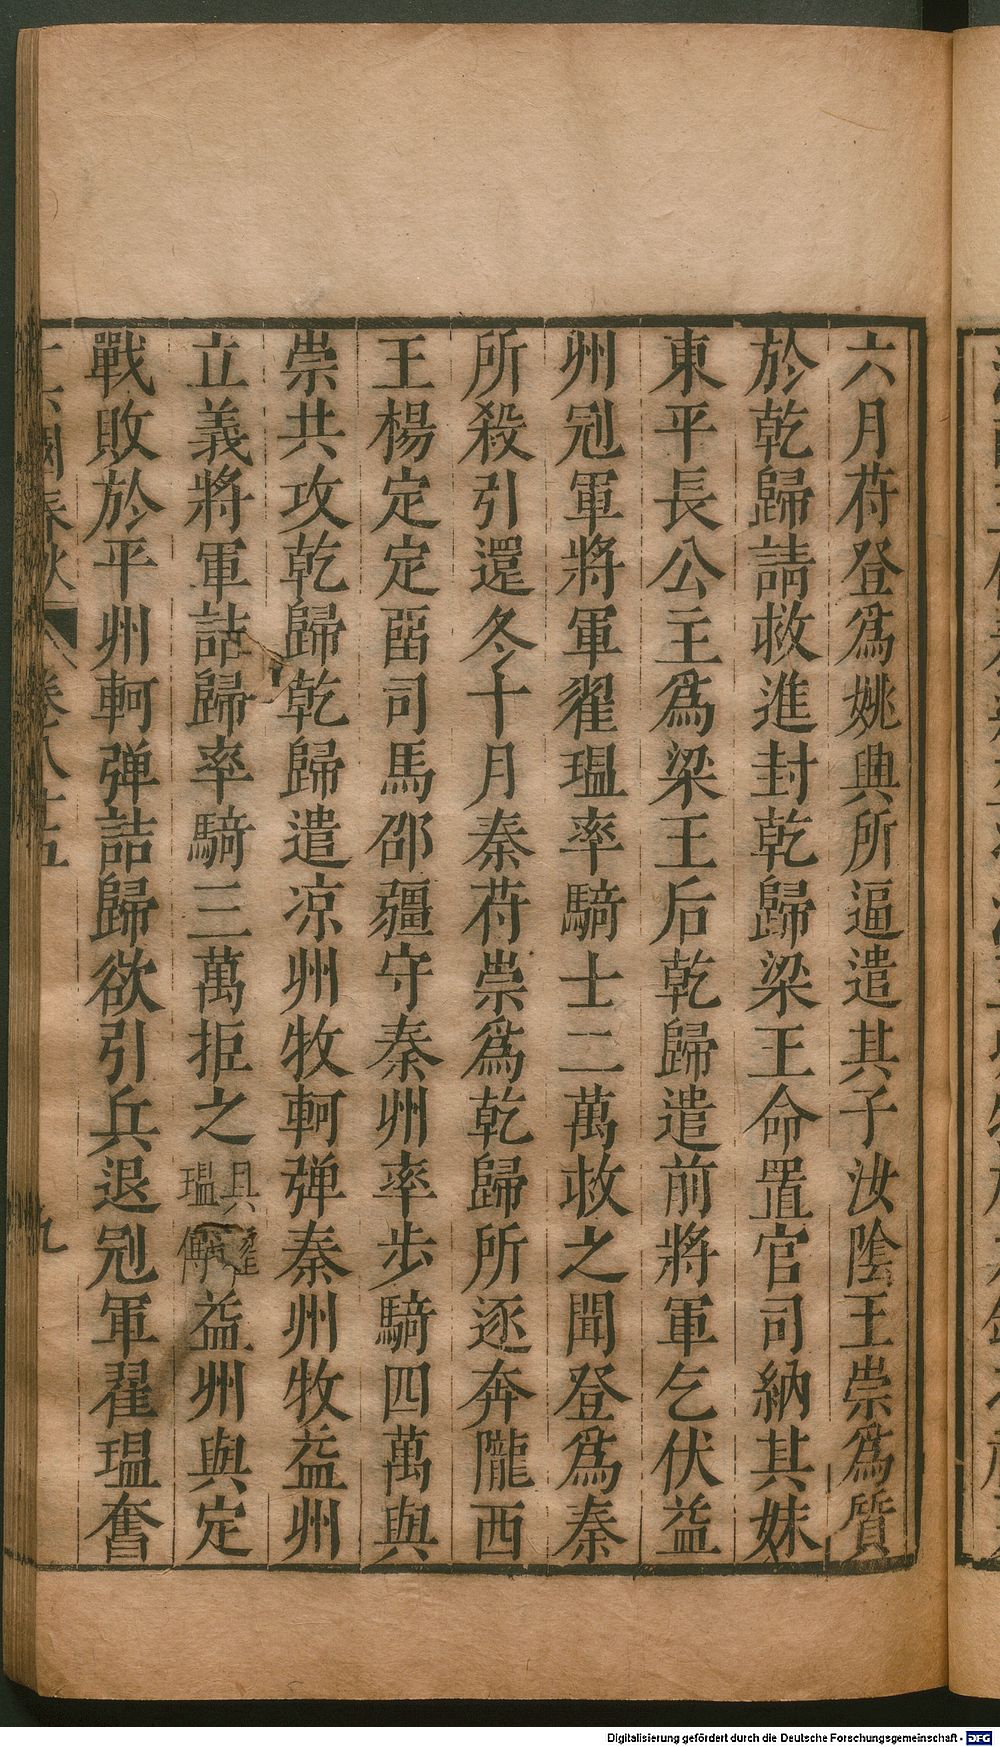 六月苻登爲姚興所逼遣其子汝陰王崇爲質
於乾歸請救進封乾歸梁王命置官司納其妹
東平長公主爲梁王后乾歸遣前將軍乞伏益
州冠軍將軍翟瑥率騎士二萬救之聞登爲秦
所殺引還冬十月秦苻崇爲乾歸所逐奔隴西
王楊定定畱司馬邵疆守秦州率步騎四萬與
崇共攻乾歸乾歸遣凉州牧軻弹秦州牧益州
立義將軍詰歸率騎三萬拒之具翟瑥傳益州與定
戰敗於平州軻弹詰歸欲引兵退冠軍翟瑥奮
十六國春秋 卷八十五 九
Digitalisierung gefördert durch die Deutsche Forschungsgemeinschaft - DFG